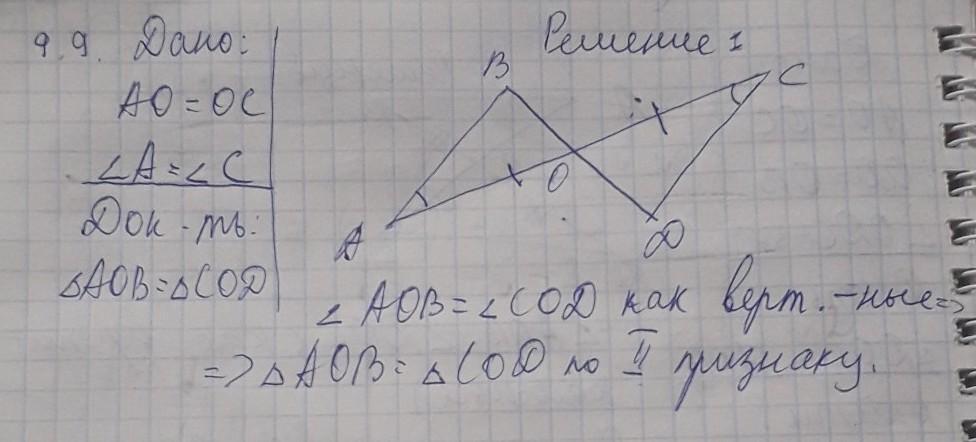 9.9. Дано:
AO = OC
∠A = ∠C
Док-ть:
△AOB = △COD
Решение:
B
C
O
A
D
∠AOB = ∠COD как верт.-ные =>
=> △AOB = △COD по II признаку.